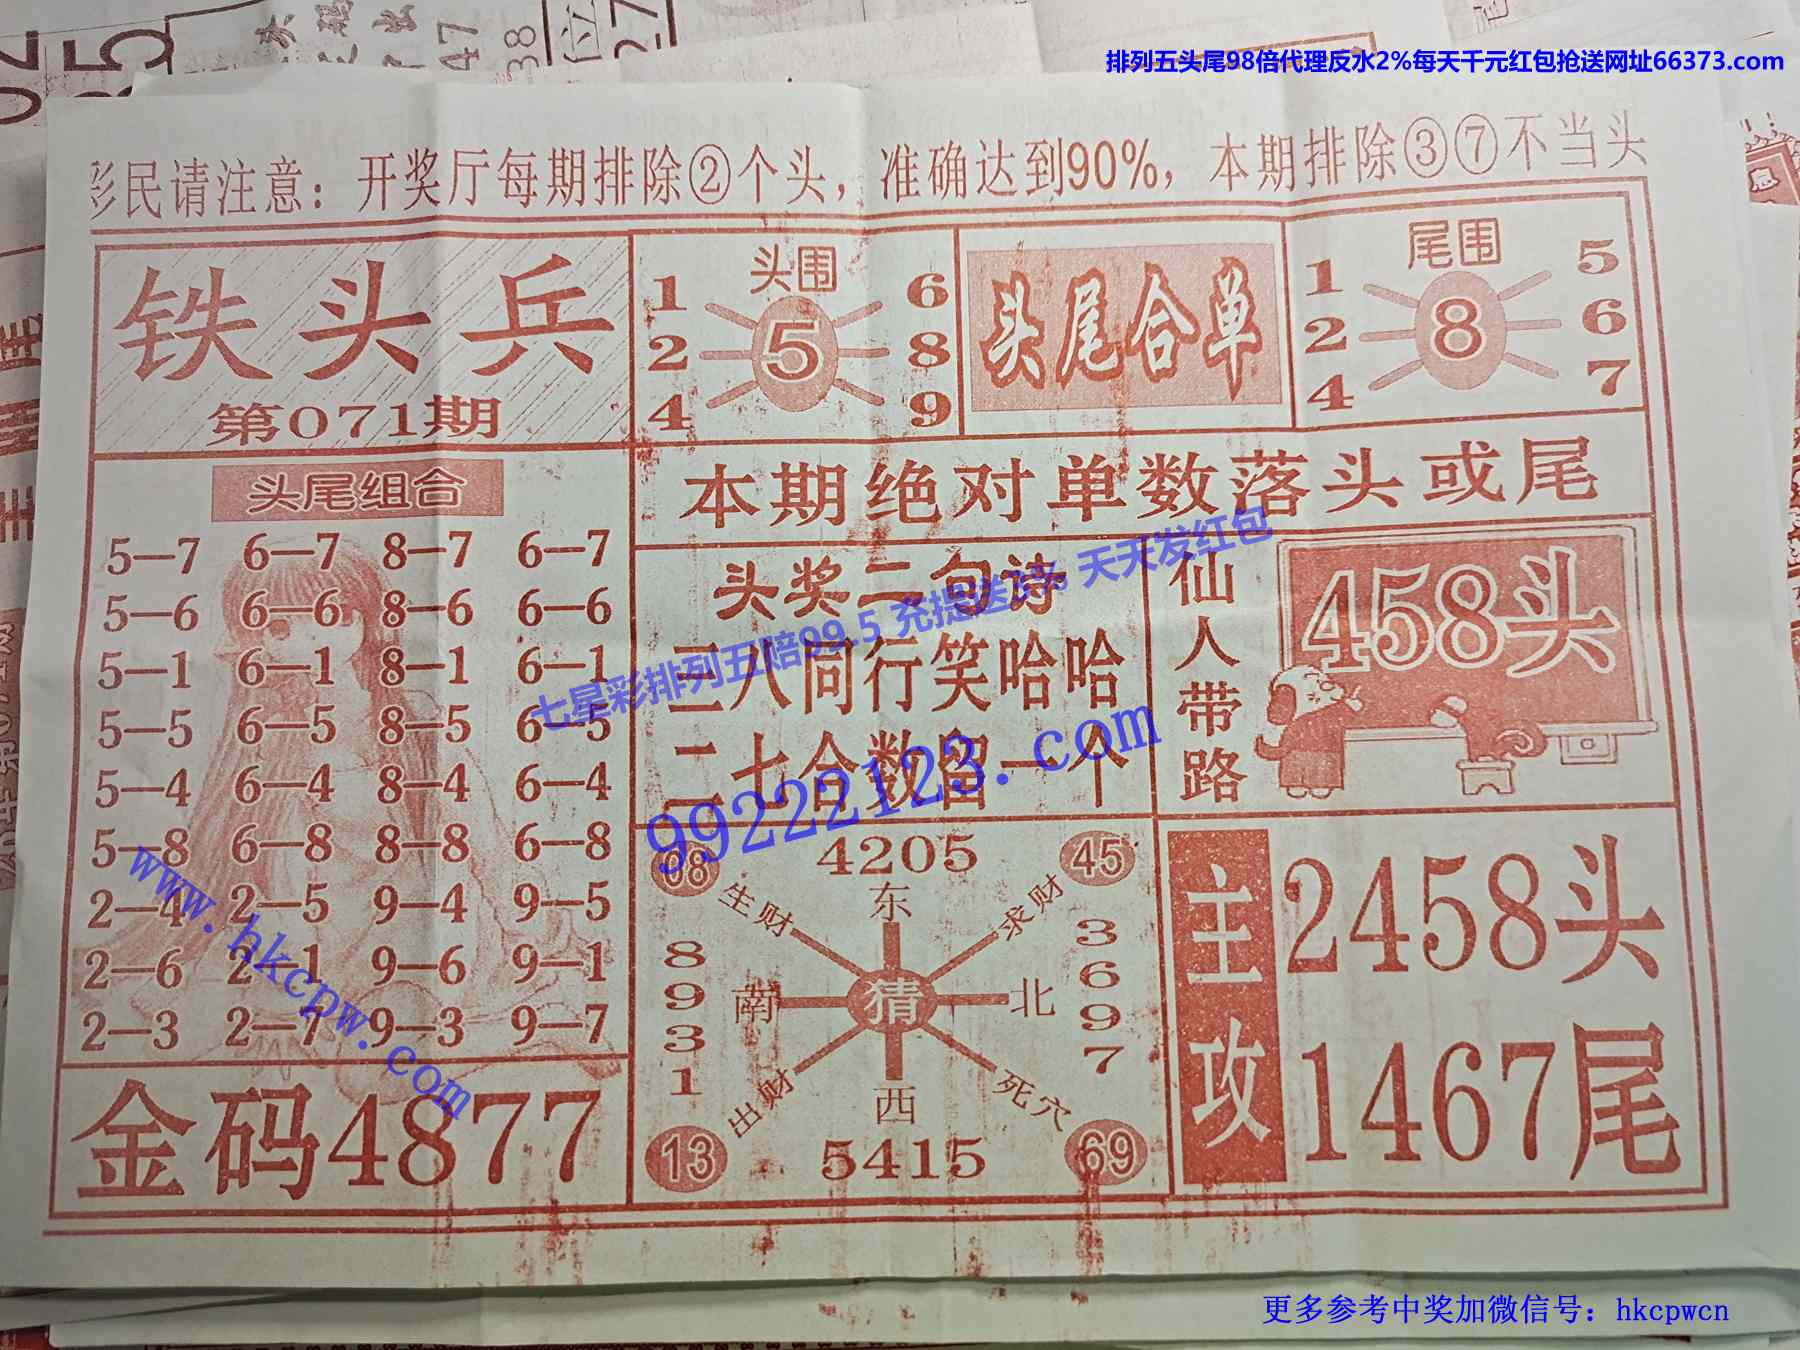 排列五头尾98倍代理反水2%每天千元红包抢送网址66373.com
彩民请注意：开奖厅每期排除②个头，准确达到90%，本期排除③⑦不当头
铁头兵
第071期
头围
1 6
2 5 8
4 9
头尾合单
尾围
1 5
2 8 6
4 7
本期绝对单数落头或尾
头尾组合
5—7 6—7 8—7 6—7
5—6 6—6 8—6 6—6
5—1 6—1 8—1 6—1
5—5 6—5 8—5 6—5
5—4 6—4 8—4 6—4
5—8 6—8 8—8 6—8
2—4 2—5 9—4 9—5
2—6 2—1 9—6 9—1
2—3 2—7 9—3 9—7
金码4877
头奖二句诗
三八同行笑哈哈
二七合数留一个
仙人带路
458头
08 4205 45
生财 东 求财
8931 南 猜 北 3697
出财 西 死穴
13 5415 69
主攻
2458头
1467尾
七星彩排列五赔99.5 充提送 天天发红包
99222123.com
www.hkcpw.com
更多参考中奖加微信号：hkcpwcn